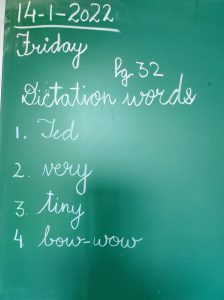 14-1-2022
Friday
Pg 32
Dictation words
1. Ted
2. very
3. tiny
4. bow-wow